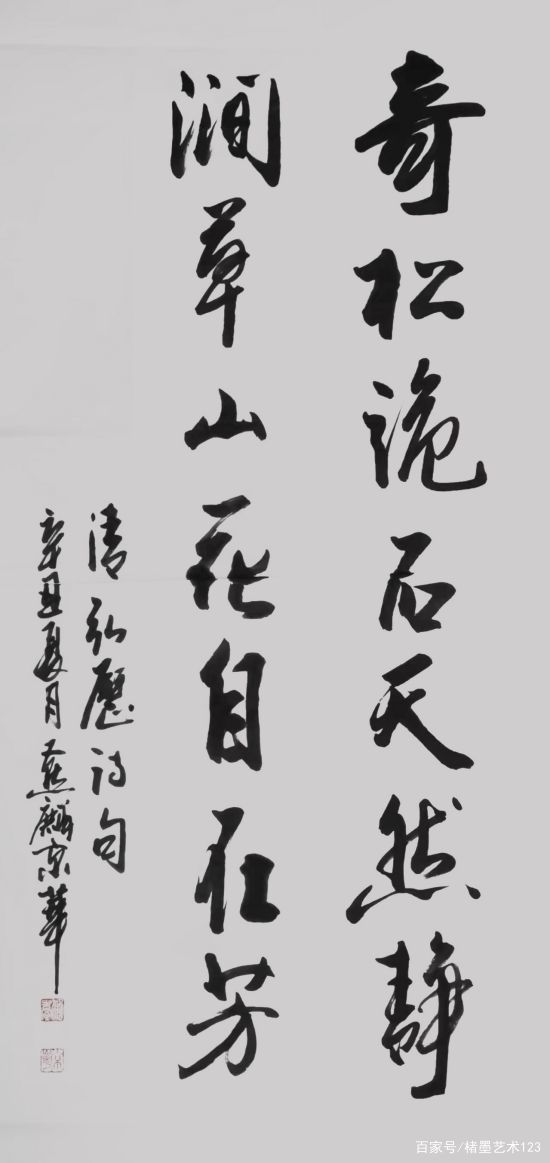 奇松诡石天然静
涧草山花自在芳
清弘历诗句
辛丑夏月燕麟京华
百家号/楮墨艺术123